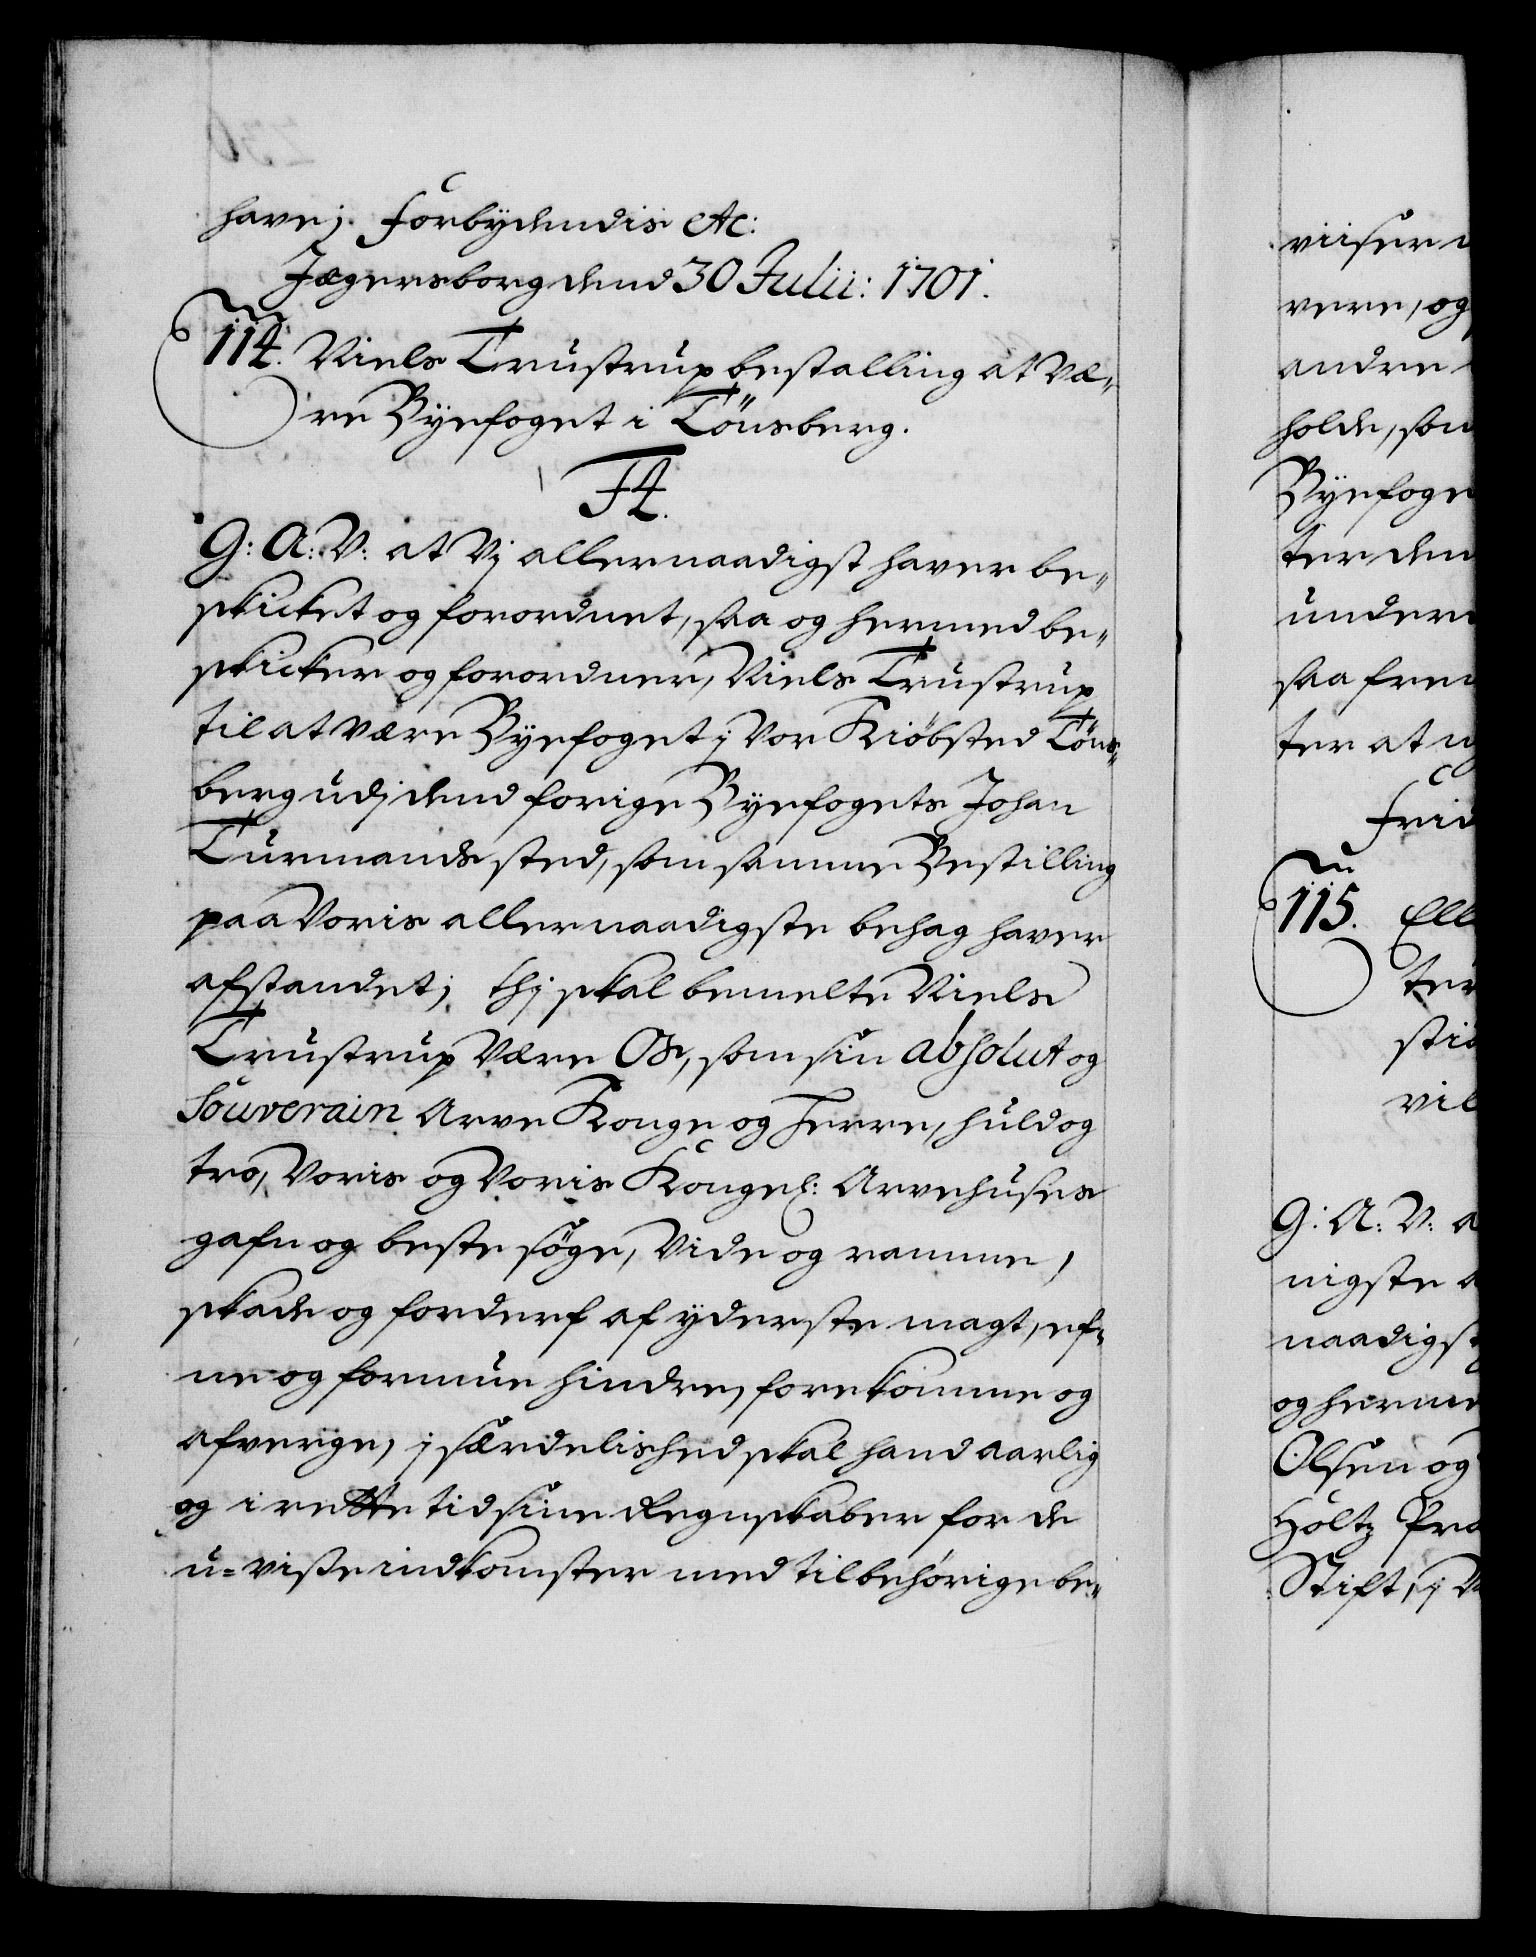 havej. Forbydendis etc:
Jægersborg dend 30 Julii: 1701.
114. Niels Trustrup bestalling at væ-
re Byefoget i Tönsberg.
F4.
G: A: V: at Vj allernaadigst hafver be-
skicket og forordnet, saa og hermed be-
skicker og forordner, Niels Trustrup
til at være Byefoget j Vor Kiöbsted Töns-
berg udj dend forige Byefogets Johan
Turmands sted, som samme Bestilling
paa Voris allernaadigste behag haver
afstandet; thj skal bemelte Niels
Trustrup være Os, som sin absolut og
Souverain Arve Konge og Herre, huld og
tro, Voris og Voris Kongel: Arvehuses
gafn og beste söge, vide og ramme,
skade og forderf af yderste magt, ef-
ne og formue hindre, forekomme og
afverge, j særdelished skal hand aarlig
og i rette tid sine Regnskaber for de
u-visse indkomster med tilbehörige be-
viiser
vere, og
andre
holde, som
Byefoge
ter den
under
saa frem
ter at
Frid
115. Ell
ter
stif
vil
G: A: V: a
nigste a
naadigst
og herme
Olsen og
Holtz Pro
Stift, j V